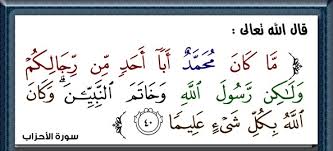 قال الله تعالى :
﴿ مَّا كَانَ مُحَمَّدٌ أَبَآ أَحَدٍ مِّن رِّجَالِكُمْ
وَلَٰكِن رَّسُولَ ٱللَّهِ وَخَاتَمَ ٱلنَّبِيِّـۧنَ ۗ وَكَانَ
ٱللَّهُ بِكُلِّ شَىْءٍ عَلِيمًا ﴿٤٠﴾
سورة الأحزاب